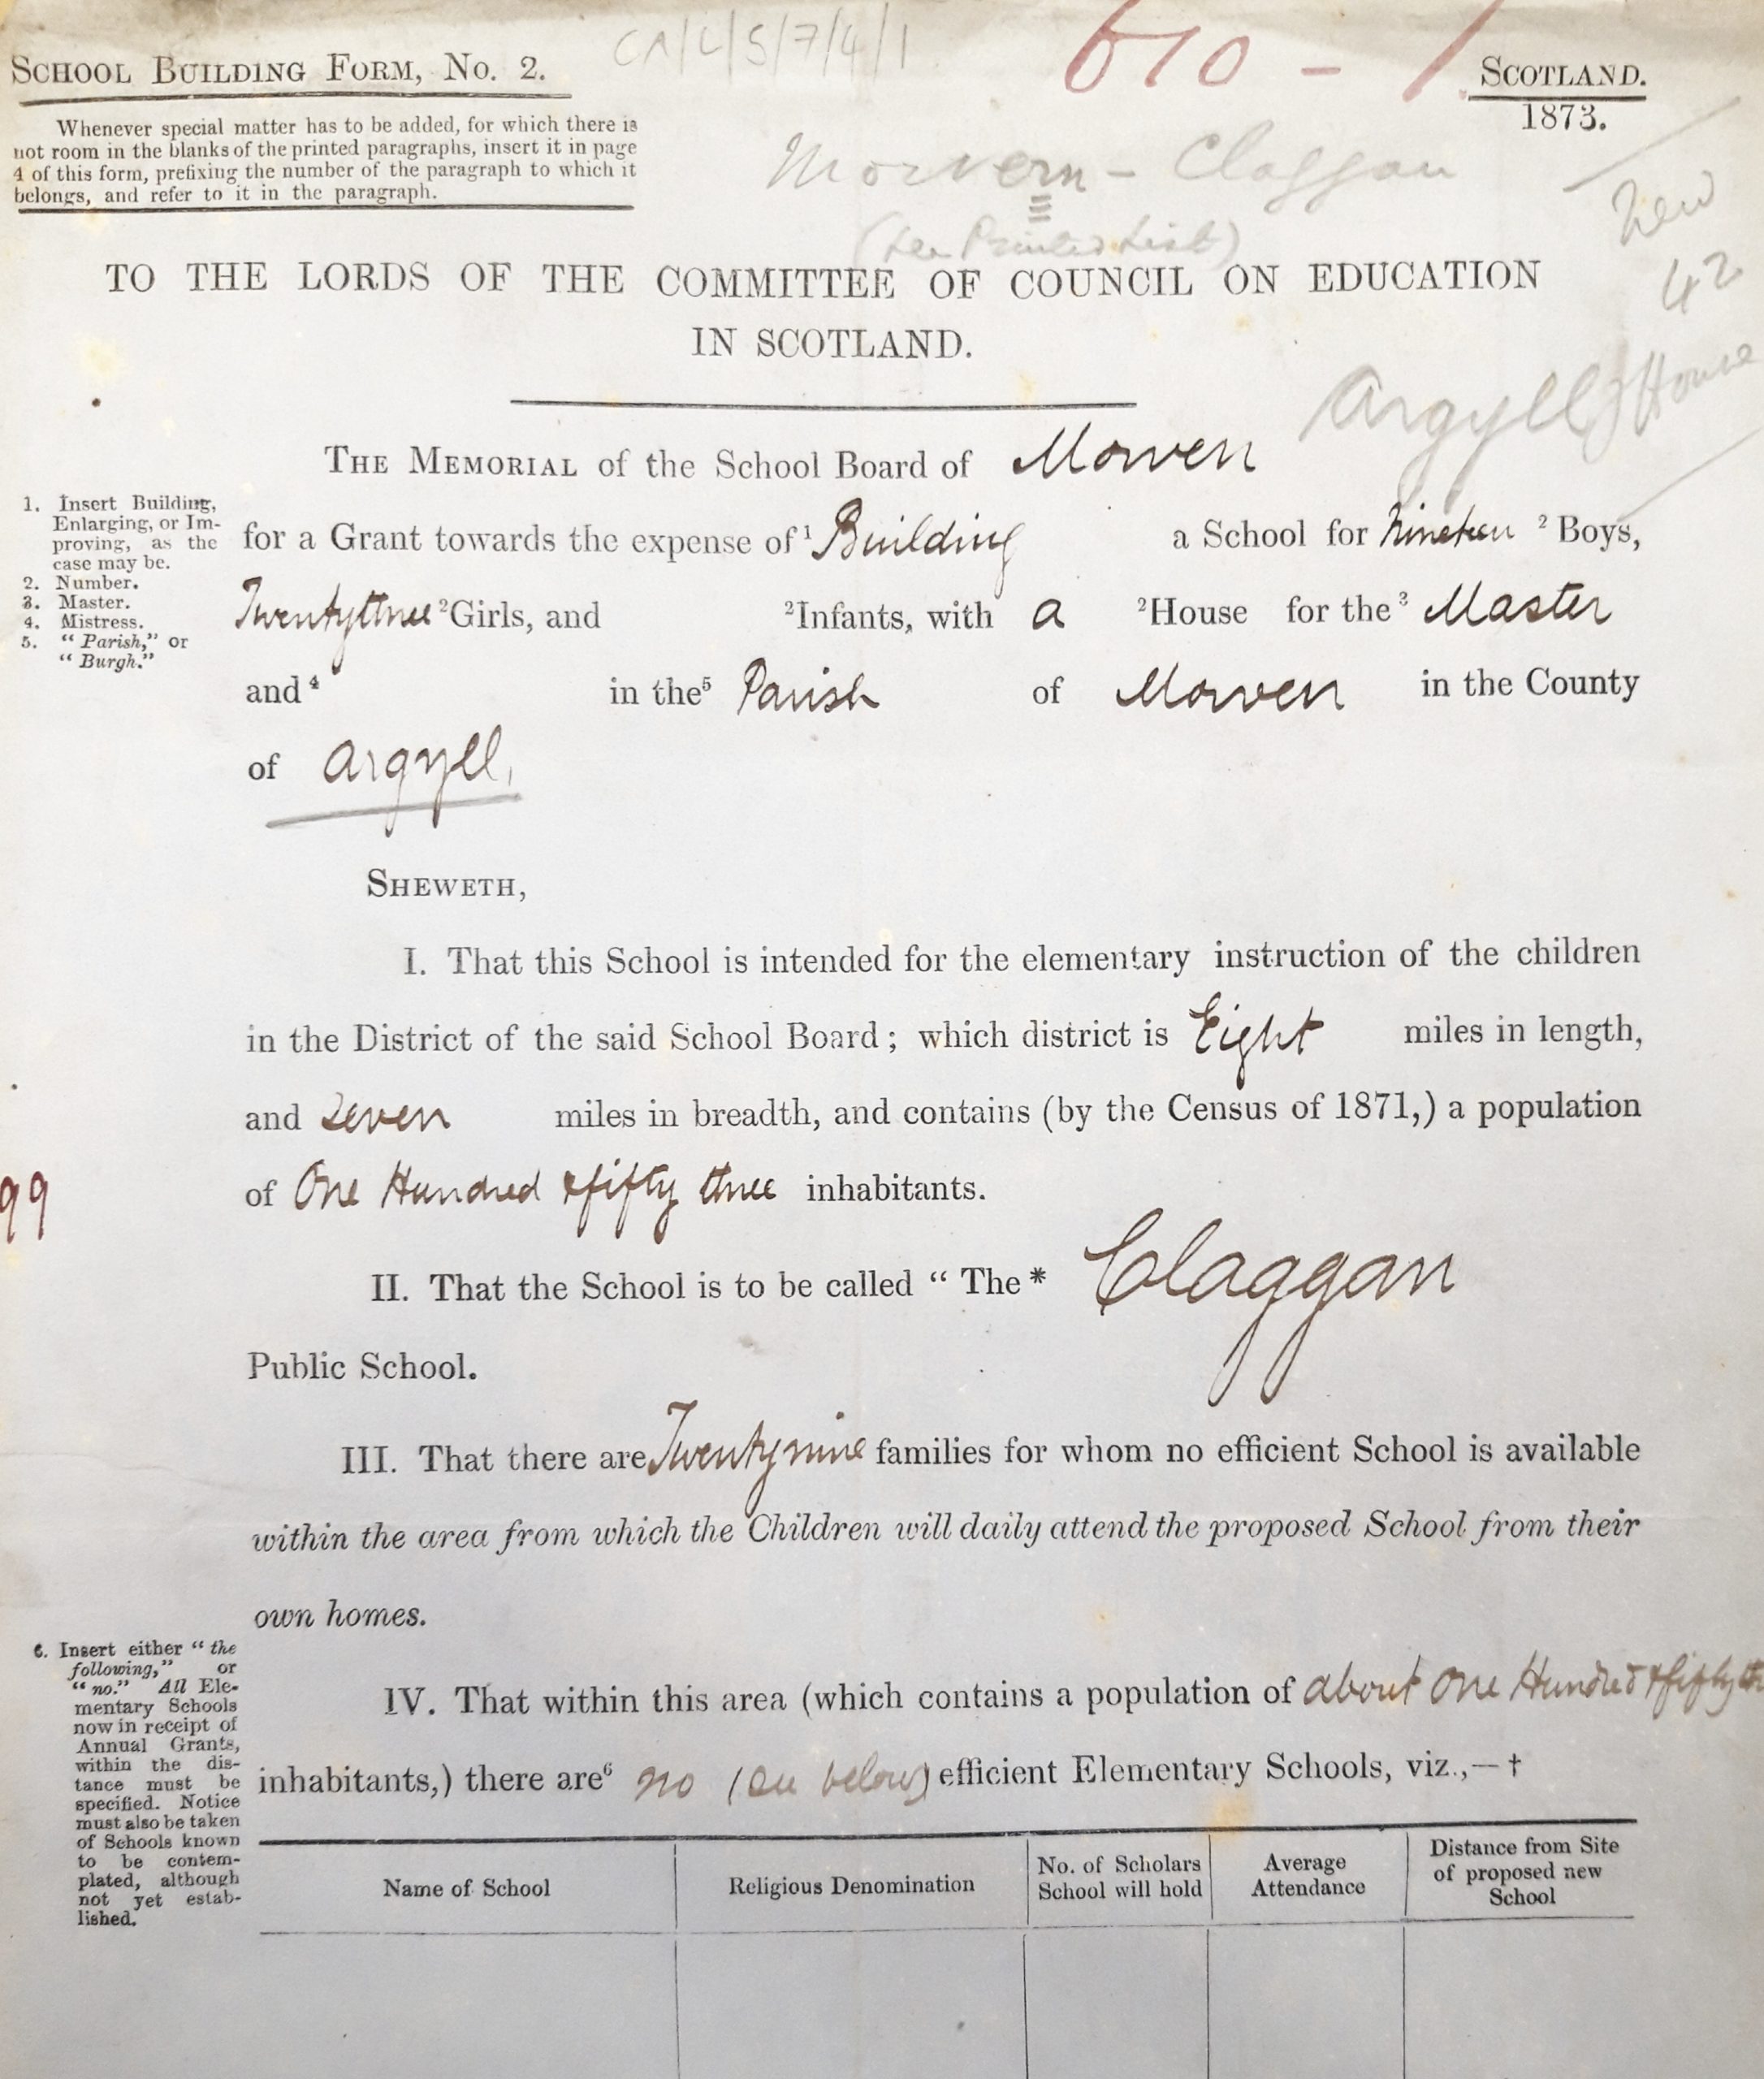 CA/L/5/7/4/1
610 - 1
SCHOOL BUILDING FORM, No. 2.
SCOTLAND.
1873.
Whenever special matter has to be added, for which there is
not room in the blanks of the printed paragraphs, insert it in page
4 of this form, prefixing the number of the paragraph to which it
belongs, and refer to it in the paragraph.
Morvern - Claggan
(see Printed List)
New
42
TO THE LORDS OF THE COMMITTEE OF COUNCIL ON EDUCATION
IN SCOTLAND.
Argyll House
THE MEMORIAL of the School Board of Morven
for a Grant towards the expense of ¹ Building a School for Nineteen ² Boys,
Twentythree ² Girls, and ² Infants, with a ² House for the ³ Master
and ⁴ in the ⁵ Parish of Morven in the County
of Argyll.
1. Insert Building,
Enlarging, or Im-
proving, as the
case may be.
2. Number.
3. Master.
4. Mistress.
5. "Parish," or
"Burgh."
SHEWETH,
I. That this School is intended for the elementary instruction of the children
in the District of the said School Board; which district is Eight miles in length,
and Seven miles in breadth, and contains (by the Census of 1871,) a population
of One Hundred & fifty three inhabitants.
99
II. That the School is to be called "The * Claggan
Public School.
III. That there are Twentynine families for whom no efficient School is available
within the area from which the Children will daily attend the proposed School from their
own homes.
IV. That within this area (which contains a population of about One Hundred & fifty
inhabitants,) there are ⁶ no (see below) efficient Elementary Schools, viz.,—†
6. Insert either "the
following," or
"no." All Ele-
mentary Schools
now in receipt of
Annual Grants,
within the dis-
tance must be
specified. Notice
must also be taken
of Schools known
to be contem-
plated, although
not yet estab-
lished.
Name of School
Religious Denomination
No. of Scholars
School will hold
Average
Attendance
Distance from Site
of proposed new
School